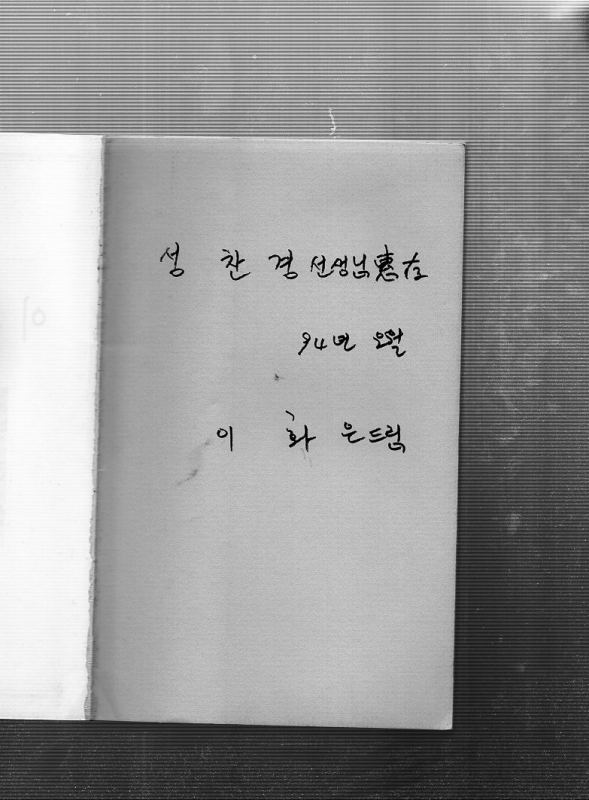 성 찬 경 선생님 惠存
94년 오월
이 화 은 드림